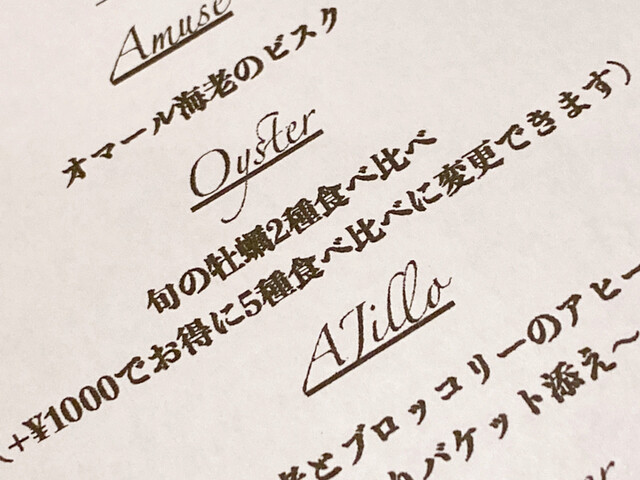 Amuse
オマール海老のビスク
Oyster
旬の牡蠣2種食べ比べ
(+¥1000でお得に5種食べ比べに変更できます)
AJillo
老とブロッコリーのアヒー
バケット添え〜